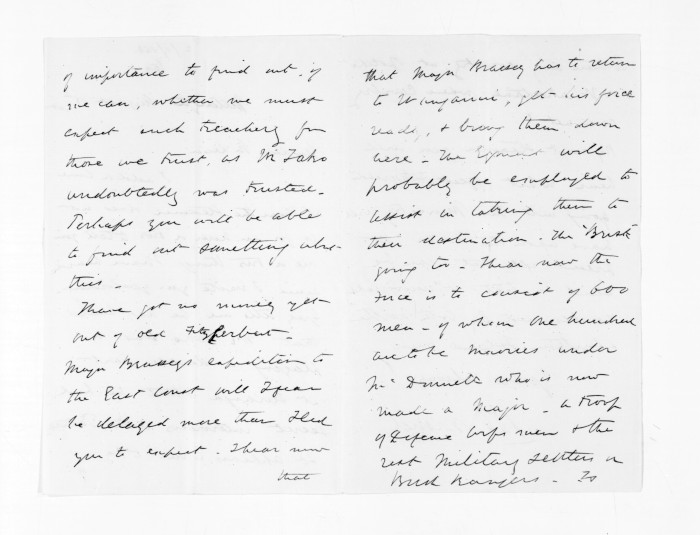 of importance to find out, if
we can, whether we must
expect such treachery from
those we trust, as Wi Tako
undoubtedly was trusted –
Perhaps you will be able
to find out something about
this –
I have got no money yet
out of old Fitzherbert –
Major Brassey's expedition to
the East Coast will I fear
be delayed more than I led
you to expect – I hear now
that
that Major Brassey has to return
to Wanganui, get his force
ready, & bring them down
here – The will
probably be employed to
assist in taking them to
their destination. The "Brisk"
going to – I hear now the
force is to consist of 600
men – of whom one hundred
are to be maories under
McDonnell who is now
made a Major – a troop
of Defence Corps men & the
rest Military Settlers or
Bush Rangers – To